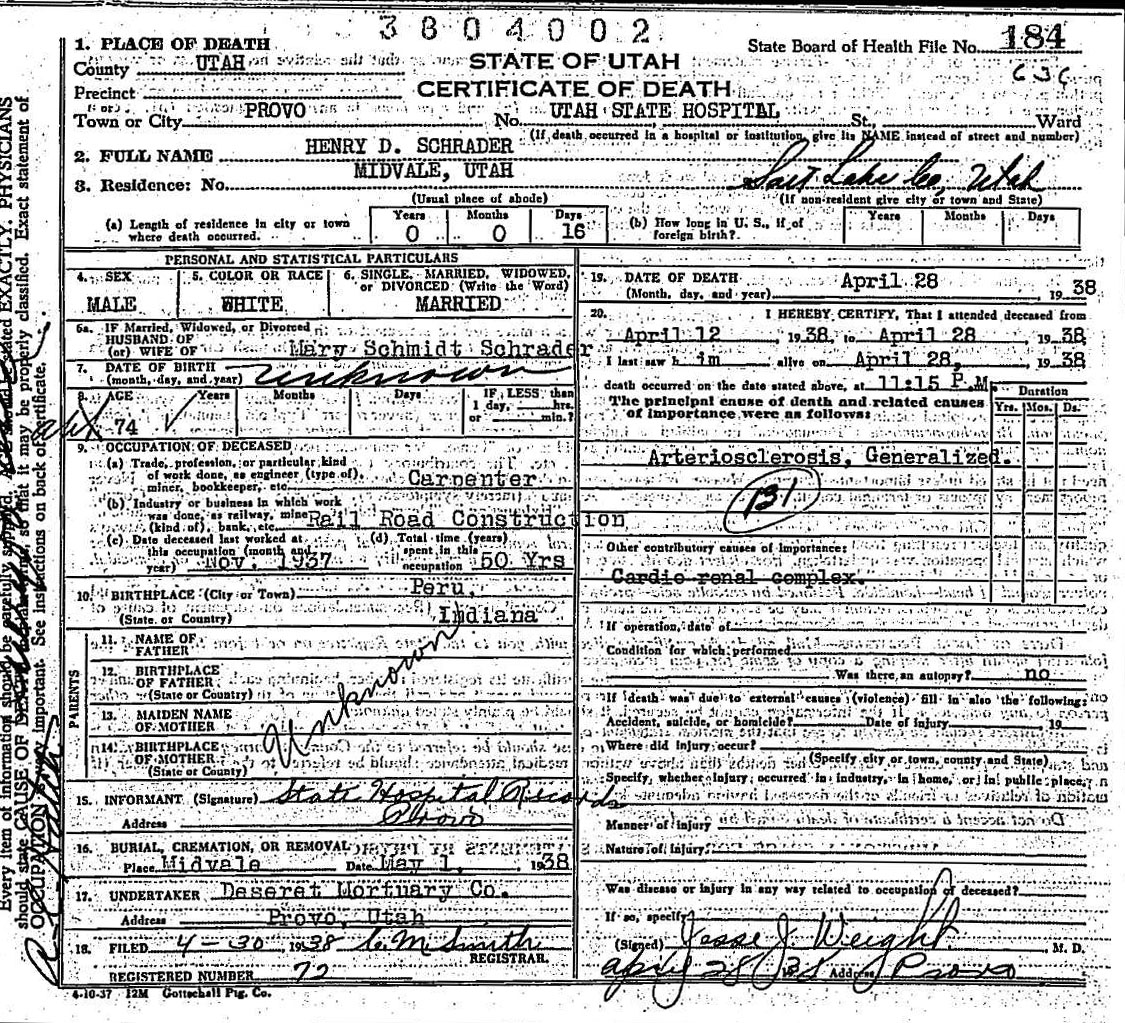 3804002
1. PLACE OF DEATH
State Board of Health File No. 184
County UTAH
STATE OF UTAH
CERTIFICATE OF DEATH
Precinct
or
Town or City PROVO No. UTAH STATE HOSPITAL St., Ward
(If death occurred in a hospital or institution, give its NAME instead of street and number)
2. FULL NAME HENRY D. SCHRADER
3. Residence: No. MIDVALE, UTAH Salt Lake Co, Utah
(Usual place of abode) (If non-resident give city or town and State)
(a) Length of residence in city or town where death occurred. Years 0 Months 0 Days 16
(b) How long in U. S., if of foreign birth? Years Months Days
PERSONAL AND STATISTICAL PARTICULARS
4. SEX MALE
5. COLOR OR RACE WHITE
6. SINGLE, MARRIED, WIDOWED, or DIVORCED (Write the Word) MARRIED
6a. IF Married, Widowed, or Divorced
HUSBAND OF
(or) WIFE OF Mary Schmidt Schrader
7. DATE OF BIRTH
(month, day, and year) Unknown
8. AGE 74 Years Months Days IF LESS than
1 day, hrs.
or min.?
9. OCCUPATION OF DECEASED
(a) Trade, profession, or particular kind
of work done, as engineer (type of),
miner, bookkeeper, etc. Carpenter
(b) Industry or business in which work
was done, as railway, mine
(kind of), bank, etc. Rail Road Construction
(c) Date deceased last worked at
this occupation (month and
year) Nov. 1937
(d) Total time (years)
spent in this
occupation 50 Yrs
10. BIRTHPLACE (City or Town) Peru,
(State or Country) Indiana
PARENTS
11. NAME OF
FATHER
12. BIRTHPLACE
OF FATHER
(State or Country)
13. MAIDEN NAME
OF MOTHER
14. BIRTHPLACE
OF MOTHER
(State or Country)
Unknown
15. INFORMANT (Signature) State Hospital Records
Address Provo
16. BURIAL, CREMATION, OR REMOVAL
Place Midvale Date May 1, 1938
17. UNDERTAKER Deseret Mortuary Co.
Address Provo, Utah
18. FILED 4-30 1938 C. M. Smith
REGISTRAR.
REGISTERED NUMBER 72
4-10-37 12M Gottschall Ptg. Co.
19. DATE OF DEATH
(Month, day, and year) April 28 1938
20. I HEREBY CERTIFY, That I attended deceased from
April 12 1938, to April 28 1938
I last saw him alive on April 28, 1938
death occurred on the date stated above, at 11:15 P.M.
The principal cause of death and related causes
of importance were as follows:
Duration
Yrs. Mos. Ds.
Arteriosclerosis, Generalized.
131
Other contributory causes of importance:
Cardio renal complex.
If operation, date of
Condition for which performed
Was there an autopsy? no
If death was due to external causes (violence) fill in also the following:
Accident, suicide, or homicide? Date of injury 19
Where did injury occur?
(Specify city or town, county and State)
Specify, whether injury occurred in industry, in home, or in public place,
Manner of injury
Nature of injury
Was disease or injury in any way related to occupation of deceased?
If so, specify
(Signed) Jesse J Weight M. D.
April 28/38 Address Provo